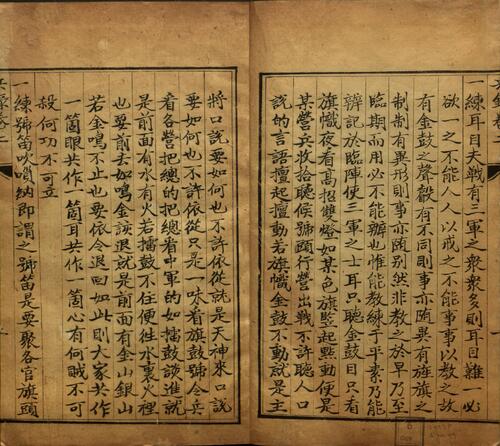 一練耳目夫戰有三軍之衆衆多則耳目雜必
欲一之不能人人以戒之不能事事以教之故
有金鼓之聲觀有不同則事亦随異有旌旗之
制制有異形則事亦随别然非教之於早乃至
臨期而用必不能辦也惟能教練于平素乃能
辨記於臨陣使三軍之士耳只聴金鼓目只看
旗幟夜看高招雙燈如某色旗竪起點動便是
某營兵收拾聴候號頭行營出戰不許聴人口
說的言語擅起擅動若旗幟金鼓不動就是主
將口說要如何也不許依從就是天神來口說
要如何也不許依從只是一味看旗鼓號令兵
看各營把總的把總看中軍的如擂鼓該進就
是前面有水有火若擂鼓不住便徃水裏火裡
也要前去如鳴金該退就是前面有金山銀山
若金鳴不止也要依令退回如此則大家共作
一箇眼共作一箇耳共作一箇心有何賊不可
殺何功不可立
一練號笛吹嗩呐即謂之號笛是要聚各官旗頭